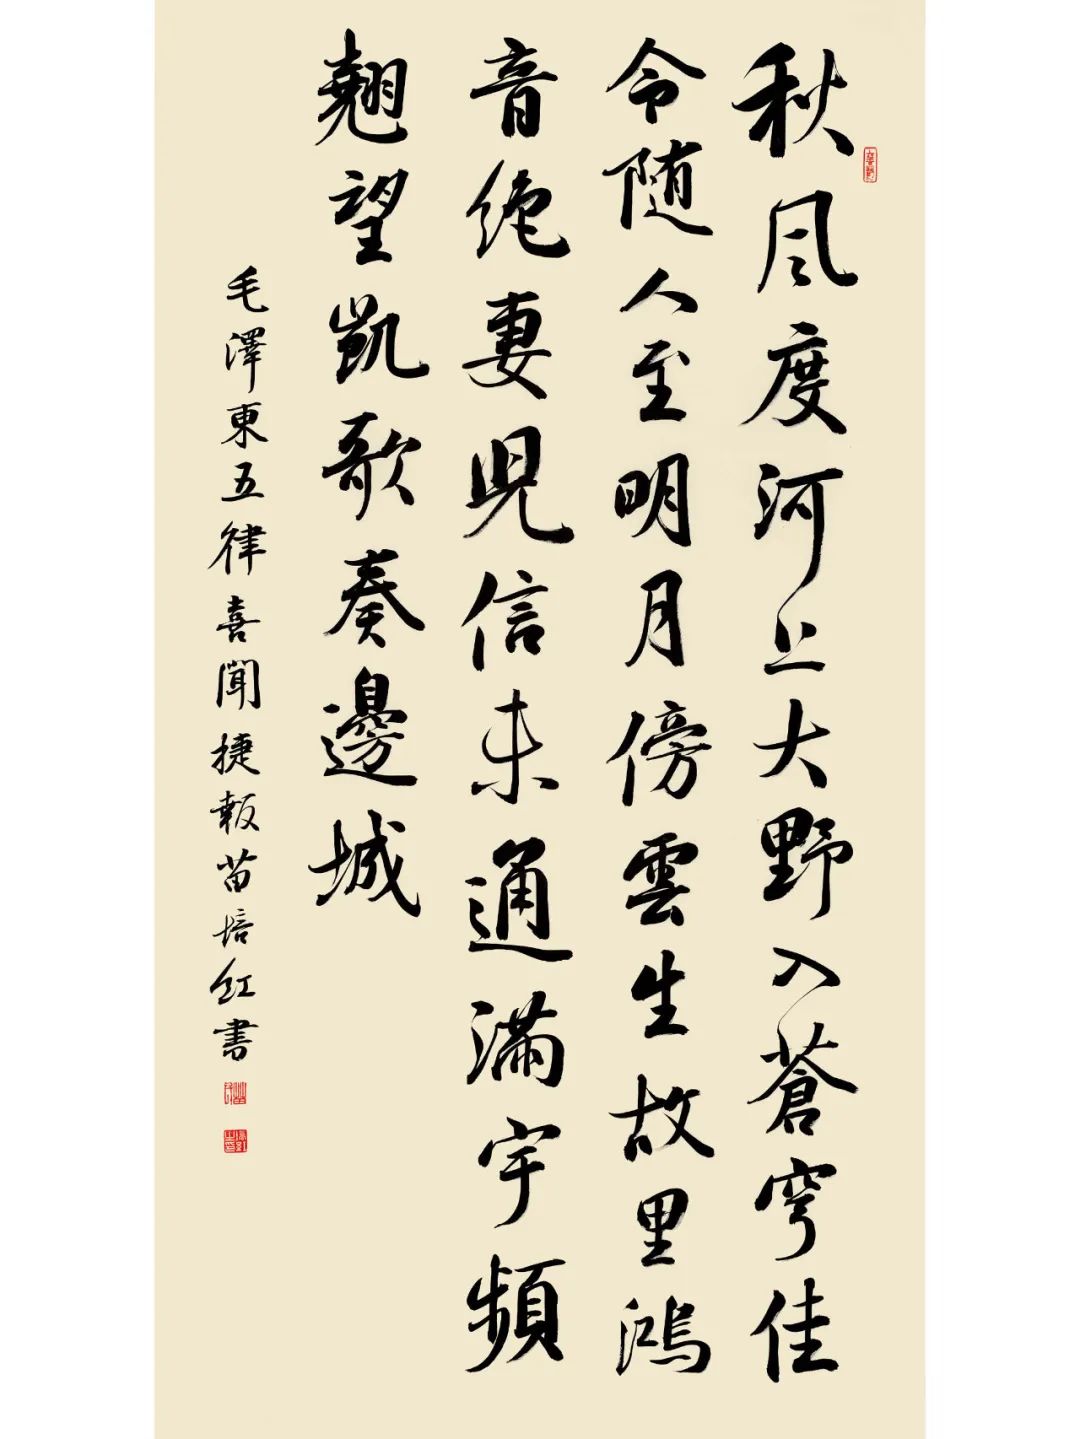 秋风度河上大野入蒼穹佳
令随人至明月傍雲生故里鴻
音绝妻児信未通満宇頻
翹望凱歌奏邊城
毛澤東五律喜聞捷報苗培红書